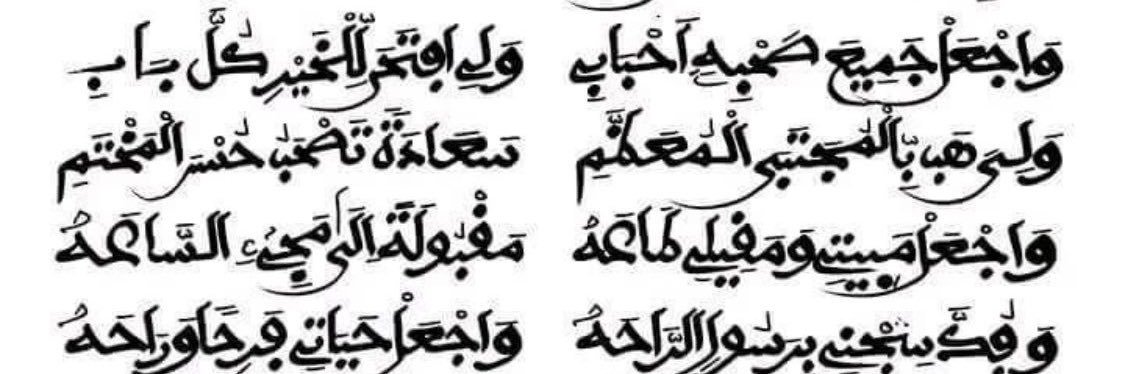 وَاجْعَلْ جَمِيعَ صَحْبِهِ أَحْبَابِي وَلِي افْتَحَنْ لِلْخَيْرِ كُلَّ بَابِ
وَلِيَ هَبْ بِالْمُجْتَبَى الْمُعَظَّمِ سَعَادَةً تَصْحَبُ حُسْنَ الْمَخْتَمِ
وَاجْعَلْ مَبِيتِي وَمَقِيلِي طَاعَهْ مَقْبُولَةً إِلَى مَجِيءِ السَّاعَهْ
وَفُكَّ سِجْنِي بِرَسُولِ الرَّاحَهْ وَاجْعَلْ حَيَاتِي فَرَحًا وَرَاحَهْ